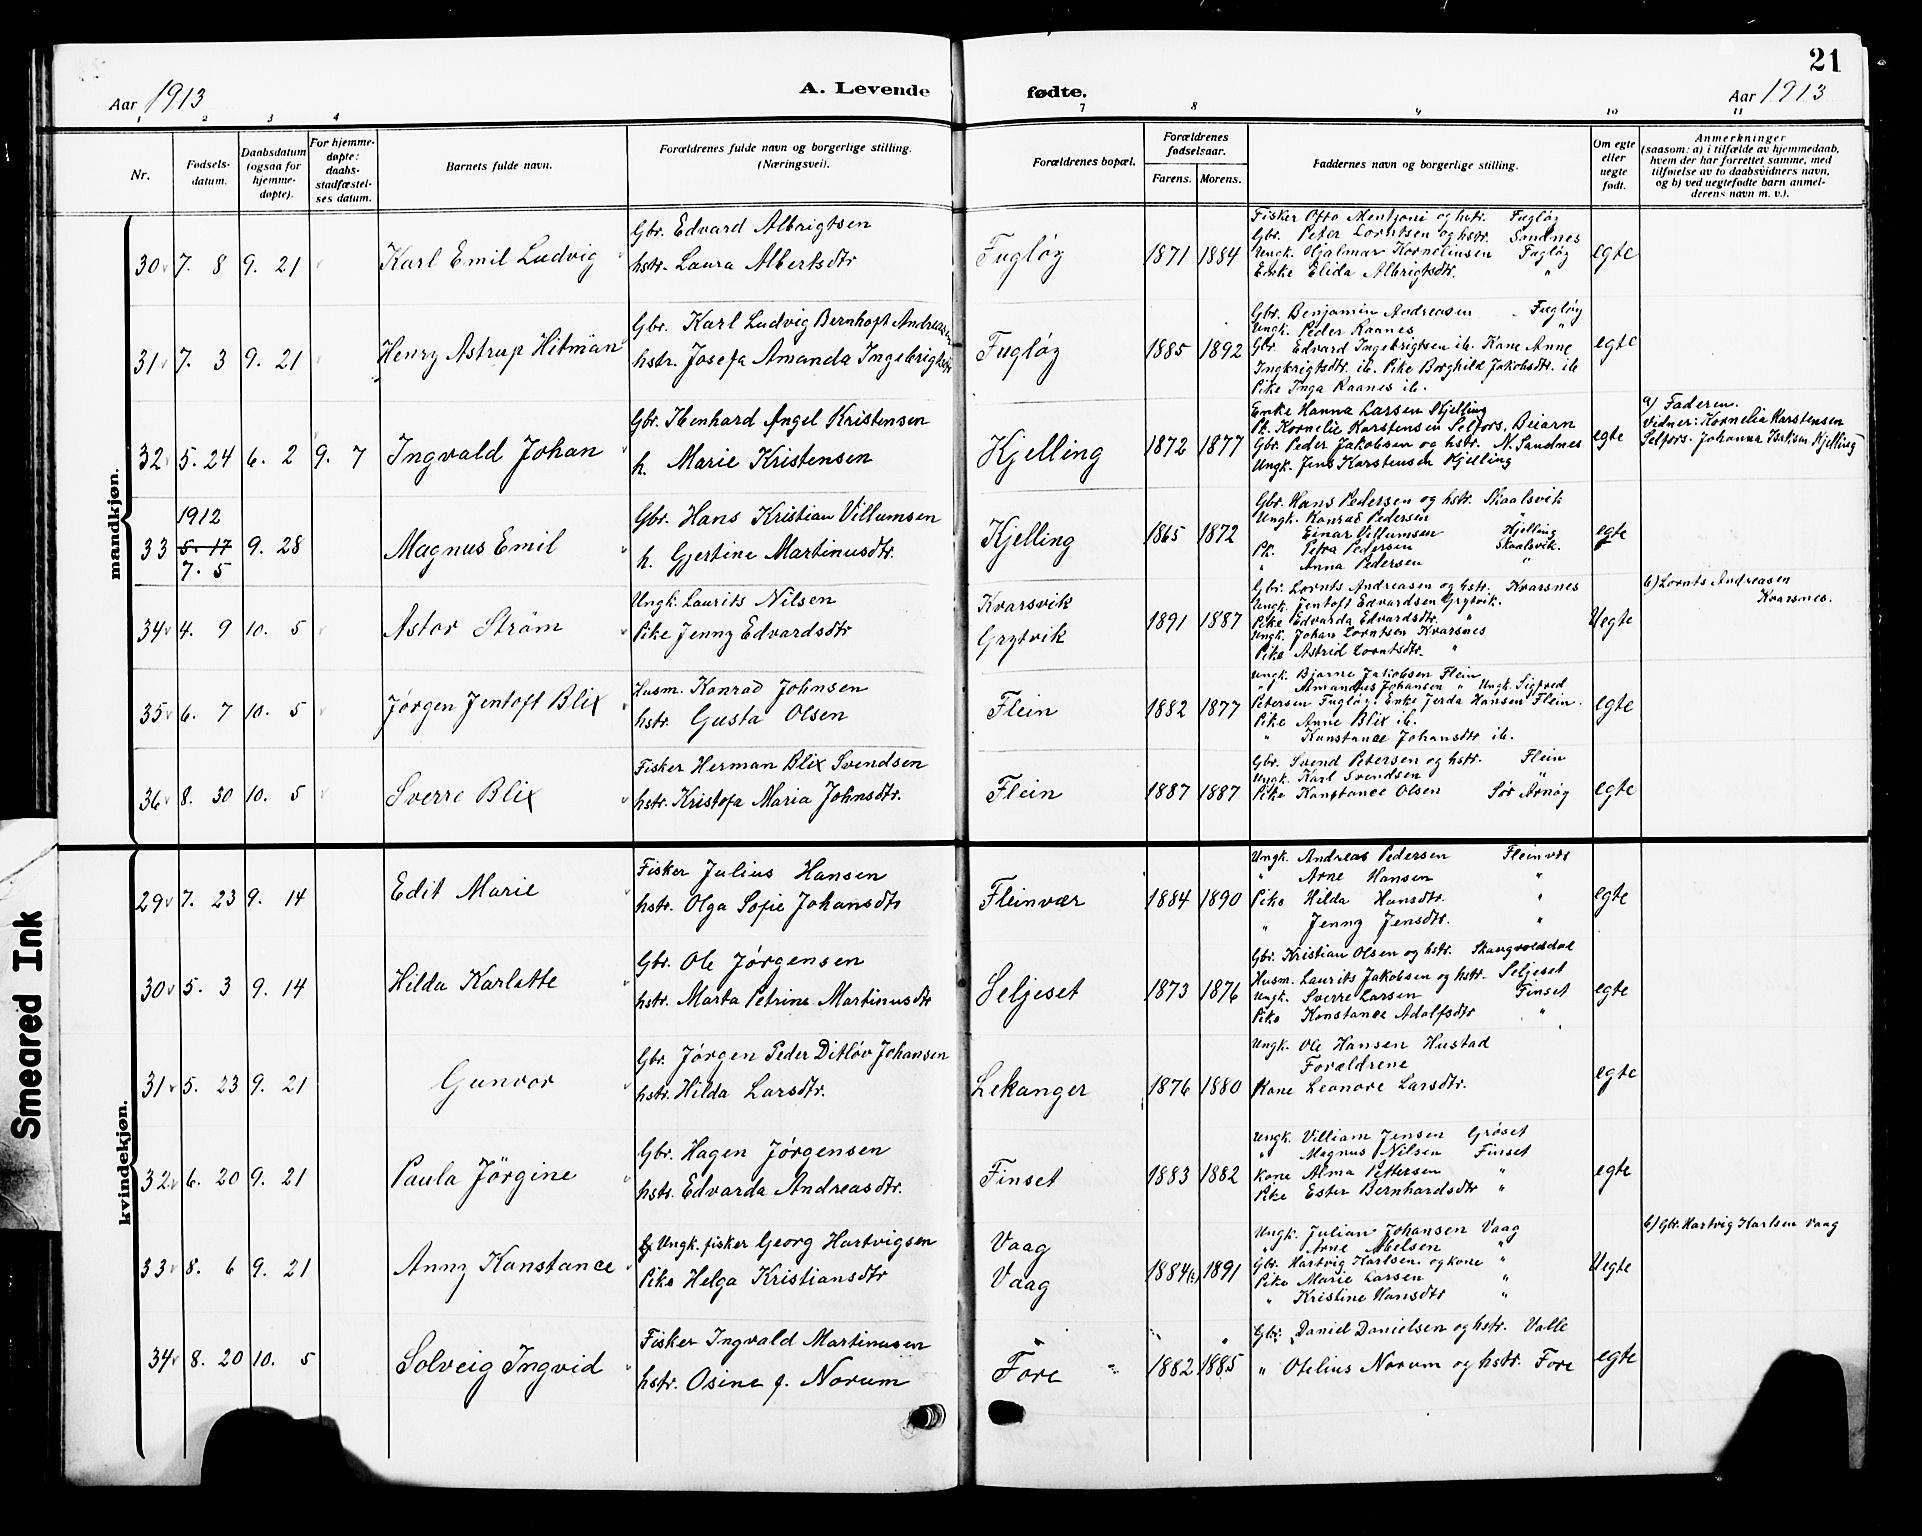 21
Aar 1913
A. Levende fødte.
Aar 1913
1 2 3 4 7 8 9 10 11
Nr.
Fødsels-
datum.
Daabsdatum
(ogsaa for
hjemme-
døpte).
For hjemme-
døpte:
daabs-
stadfæstel-
ses datum.
Barnets fulde navn.
Forældrenes fulde navn og borgerlige stilling.
(Næringsvei).
Forældrenes bopæl.
Forældrenes
fødselsaar.
Farens. Morens.
Faddernes navn og borgerlige stilling.
Om egte
eller
uegte
født.
Anmerkninger
(saasom: a) i tilfælde av hjemmedaab,
hvem der har forrettet samme, med
tilføielse av to daabsvidners navn,
og b) ved uegtefødte barn anmel-
derens navn m. v.).
mandkjøn.
30 7. 8 9. 21 Karl Emil Ludvig
Gbr. Edvard Albrigtsen
hstr. Laura Albertsdtr
Fugløy 1871 1884
Fisker Otto Mentzoni og hstr. Fugløy
Gbr. Peter Lorntsen og hstr. Sandnes
Ungk. Hjalmar Kornelinsen Fugløy
Enke Elida Albrigtsdtr. "
egte
31 7. 3 9. 21 Henry Astrup Hitman
Gbr. Karl Ludvig Bernhoft Andreasen
hstr. Josefa Amanda Ingebrigtsdtr
Fugløy 1885 1892
Gbr. Benjamin Andreasen Fugløy
Ungk. Peder Raanes "
Gbr. Edvard Ingebrigtsen ib. Kone Anne
Ingbrigtsdtr. ib. Pike Borghild Jakobsdtr. ib
Pike Inga Raanes ib.
egte
32 5. 24 6. 2 9. 7 Ingvald Johan
Gbr. Ibenhard Angel Kristensen
h. Marie Kristensen
Kjelling 1872 1877
Enke Hanna Larsen Kjelling
Pk. Kornelie Karstensen Selfors, Beiarn
Gbr. Peder Jakobsen og hstr. N. Sandnes
Ungk. Jens Karstensen Kjelling
egte
a) Faderen.
Vidner: Kornelia Karstensen
Selfors. Johanna Kjelling
33 1912
5. 17
7. 5
9. 28 Magnus Emil
Gbr. Hans Kristian Villumsen
h. Gjertine Martinusdtr.
Kjelling 1865 1872
Gbr. Hans Pedersen og hstr. Skaalsvik
Ungk. Konrad Pedersen "
Einar Villumsen Kjelling
Pk. Petra Pedersen Skaalsvik.
" Anna Pedersen "
egte
34 4. 9 10. 5 Astor Strøm
Ungk. Laurits Nilsen
Pike Jenny Edvardsdtr
Kvarsvik
Grytvik
1891 1887
Gbr. Lornts Andreasen og hstr. Kvarsnes
Ungk. Jentoft Edvardsen Grytvik.
Pike Edvarda Edvardsdtr. "
Ungk. Johan Lorntsen Kvarsnes
Pike Astrid Lorntsdtr. "
Uegte
b) Lornts Andreasen
Kvarsnes.
35 6. 7 10. 5 Jørgen Jentoft Blix
Husm. Konrad Johnsen
hstr. Gusta Olsen
Flein 1882 1877
Ungk. Bjarne Jakobsen Flein
" Amandus Johansen " Ungk. Sigfred
Petersen Fugløy. Enke Jerda Hansen Flein.
Pike Anne Blix ib.
" Konstance Johansdtr ib.
egte
36 8. 30 10. 5 Sverre Blix
Fisker Herman Blix Svendsen
hstr. Kristofa Maria Johnsdtr.
Flein 1887 1887
Gbr. Svend Petersen og hstr. Flein
Ungk. Karl Svendsen "
Pike Konstance Olsen Sør Arnøy
egte
kvindekjøn.
29 7. 23 9. 14 Edit Marie
Fisker Julius Hansen
hstr. Olga Sofie Johansdtr
Fleinvær 1884 1890
Ungk. Andreas Pedersen Fleinvær
" Arne Hansen "
Pike Hilda Hansdtr. "
" Jenny Jensdtr. "
egte
30 5. 3 9. 14 Hilda Karlotte
Gbr. Ole Jørgensen
hstr. Marta Petrine Martinusdtr
Seljeset 1873 1876
Gbr. Kristian Olsen og hstr. Skaugvoldsdal
Husm. Laurits Jakobsen og hstr. Seljeset
Ungk. Sverre Larsen Finset
Pike Konstance Adolfsdtr "
egte
31 5. 23 9. 21 Gunvor
Gbr. Jørgen Peder Ditløv Johansen
hstr. Hilda Larsdtr.
Lekanger 1876 1880
Ungk. Ole Hansen Hustad
Forældrene
Kone Leonore Larsdtr.
egte
32 6. 20 9. 21 Paula Jörgine
Gbr. Hagen Jørgensen
hstr. Edvarda Andreasdtr.
Finset 1883 1882
Ungk. Villiam Jensen Grøset
" Magnus Nilsen Finset
Kone Alma Pettersen "
Pike Ester Bernhardsdtr "
egte
33 8. 6 9. 21 Anny Konstance
Ungk. fisker Georg Hartvigsen
Pike Helga Kristiansdtr
Vaag
Vaag
1884 1891
Ungk. Julian Johansen Vaag
" Arne Abelsen "
Gbr. Hartvig Karlsen og kone "
Pike Marie Larsen "
" Kristine Hansdtr "
Uegte
b) Gbr. Hartvig Karlsen Vaag
34 8. 20 10. 5 Solveig Ingvid
Fisker Ingvald Martinusen
hstr. Osine f. Norum
Fore 1882 1885
Gbr. Daniel Danielsen og hstr. Valle
" Otelius Norum og hstr. Fore
egte
Smeared Ink